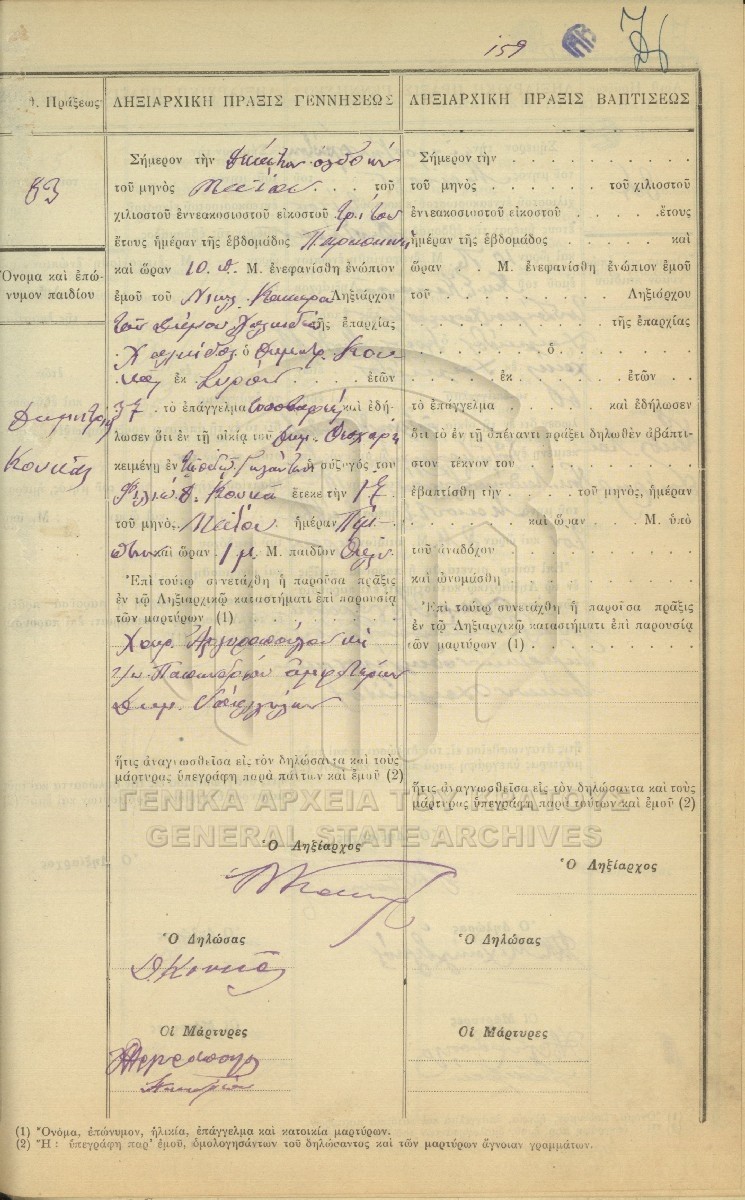 159
θ. Πράξεως
83
Ὄνομα καὶ ἐπώ-
νυμον παιδίου
Κουκᾶς
ΛΗΞΙΑΡΧΙΚΗ ΠΡΑΞΙΣ ΓΕΝΝΗΣΕΩΣ
Σήμερον τὴν
τοῦ μηνὸς Μαΐου . . . τοῦ
χιλιοστοῦ ἐννεακοσιοστοῦ εἰκοστοῦ τρίτου
ἔτους ἡμέραν τῆς ἑβδομάδος Παρασκευὴ
καὶ ὥραν 10 π. Μ. ἐνεφανίσθη ἐνώπιον
ἐμοῦ τοῦ Νικλ. Ληξιάρχου
τοῦ Δήμου τῆς ἐπαρχίας
ὁ Δημητρ. Κου
κᾶς ἐκ . . . ἐτῶν
37 . τὸ ἐπάγγελμα καὶ ἐδή-
λωσεν ὅτι ἐν τῇ οἰκίᾳ του
κειμένῃ ἐν ἡ σύζυγός του
Δ. Κουκᾶ ἔτεκε τὴν 17 .
τοῦ μηνὸς Μαΐου ἡμέραν Πέμ-
πτην καὶ ὥραν 1 μ. Μ. παιδίον θῆλυ
Ἐπὶ τούτῳ συνετάχθη ἡ παροῦσα πρᾶξις
ἐν τῷ Ληξιαρχικῷ καταστήματι ἐπὶ παρουσίᾳ
τῶν μαρτύρων (1) . . . . . . . . . .
Ἀργυροπούλου καὶ
Δημ.
ἥτις ἀναγνωσθεῖσα εἰς τὸν δηλώσαντα καὶ τοὺς
μάρτυρας ὑπεγράφη παρὰ πάντων καὶ ἐμοῦ (2)
Ὁ Ληξίαρχος
Ὁ Δηλώσας
Δ. Κουκᾶς
Οἱ Μάρτυρες
ΛΗΞΙΑΡΧΙΚΗ ΠΡΑΞΙΣ ΒΑΠΤΙΣΕΩΣ
Σήμερον τὴν . . . . . . . . . .
τοῦ μηνὸς . . . . . . . τοῦ χιλιοστοῦ
ἐννεακοσιοστοῦ εἰκοστοῦ . . . . . .ἔτους
ἡμέραν τῆς ἑβδομάδος . . . . . καὶ
ὥραν . . Μ. ἐνεφανίσθη ἐνώπιον ἐμοῦ
τοῦ . . . . . . . . . Ληξιάρχου
. . . . . . . . . . τῆς ἐπαρχίας
. . . . . . . ὁ . . . . . . . .
. . . . . . ἐκ . . . . . ἐτῶν . .
τὸ ἐπάγγελμα . . . . . . καὶ ἐδήλωσεν
ὅτι τὸ ἐν τῇ ἀπέναντι πράξει δηλωθὲν ἀβάπτι-
στον τέκνον του . . . . . . . . . .
ἐβαπτίσθη τὴν . . . . τοῦ μηνός, ἡμέραν
. . . . . . . καὶ ὥραν . . . Μ. ὑπὸ
τοῦ ἀναδόχου . . . . . . . . . . .
καὶ ὠνομάσθη . . . . . . . . . . .
Ἐπὶ τούτῳ συνετάχθη ἡ παροῦσα πρᾶξις
ἐν τῷ Ληξιαρχικῷ καταστήματι ἐπὶ παρουσίᾳ
τῶν μαρτύρων (1) . . . . . . . . . .
ἥτις ἀναγνωσθεῖσα εἰς τὸν δηλώσαντα καὶ τοὺς
μάρτυρας ὑπεγράφη παρὰ τούτων καὶ ἐμοῦ (2)
Ὁ Ληξίαρχος
Ὁ Δηλώσας
Οἱ Μάρτυρες
ΓΕΝΙΚΑ ΑΡΧΕΙΑ ΤΟΥ ΚΡΑΤΟΥΣ
GENERAL STATE ARCHIVES
(1) Ὄνομα, ἐπώνυμον, ἡλικία, ἐπάγγελμα καὶ κατοικία μαρτύρων.
(2) Ἢ : ὑπεγράφη παρ' ἐμοῦ, ὁμολογησάντων τοῦ δηλώσαντος καὶ τῶν μαρτύρων ἄγνοιαν γραμμάτων.